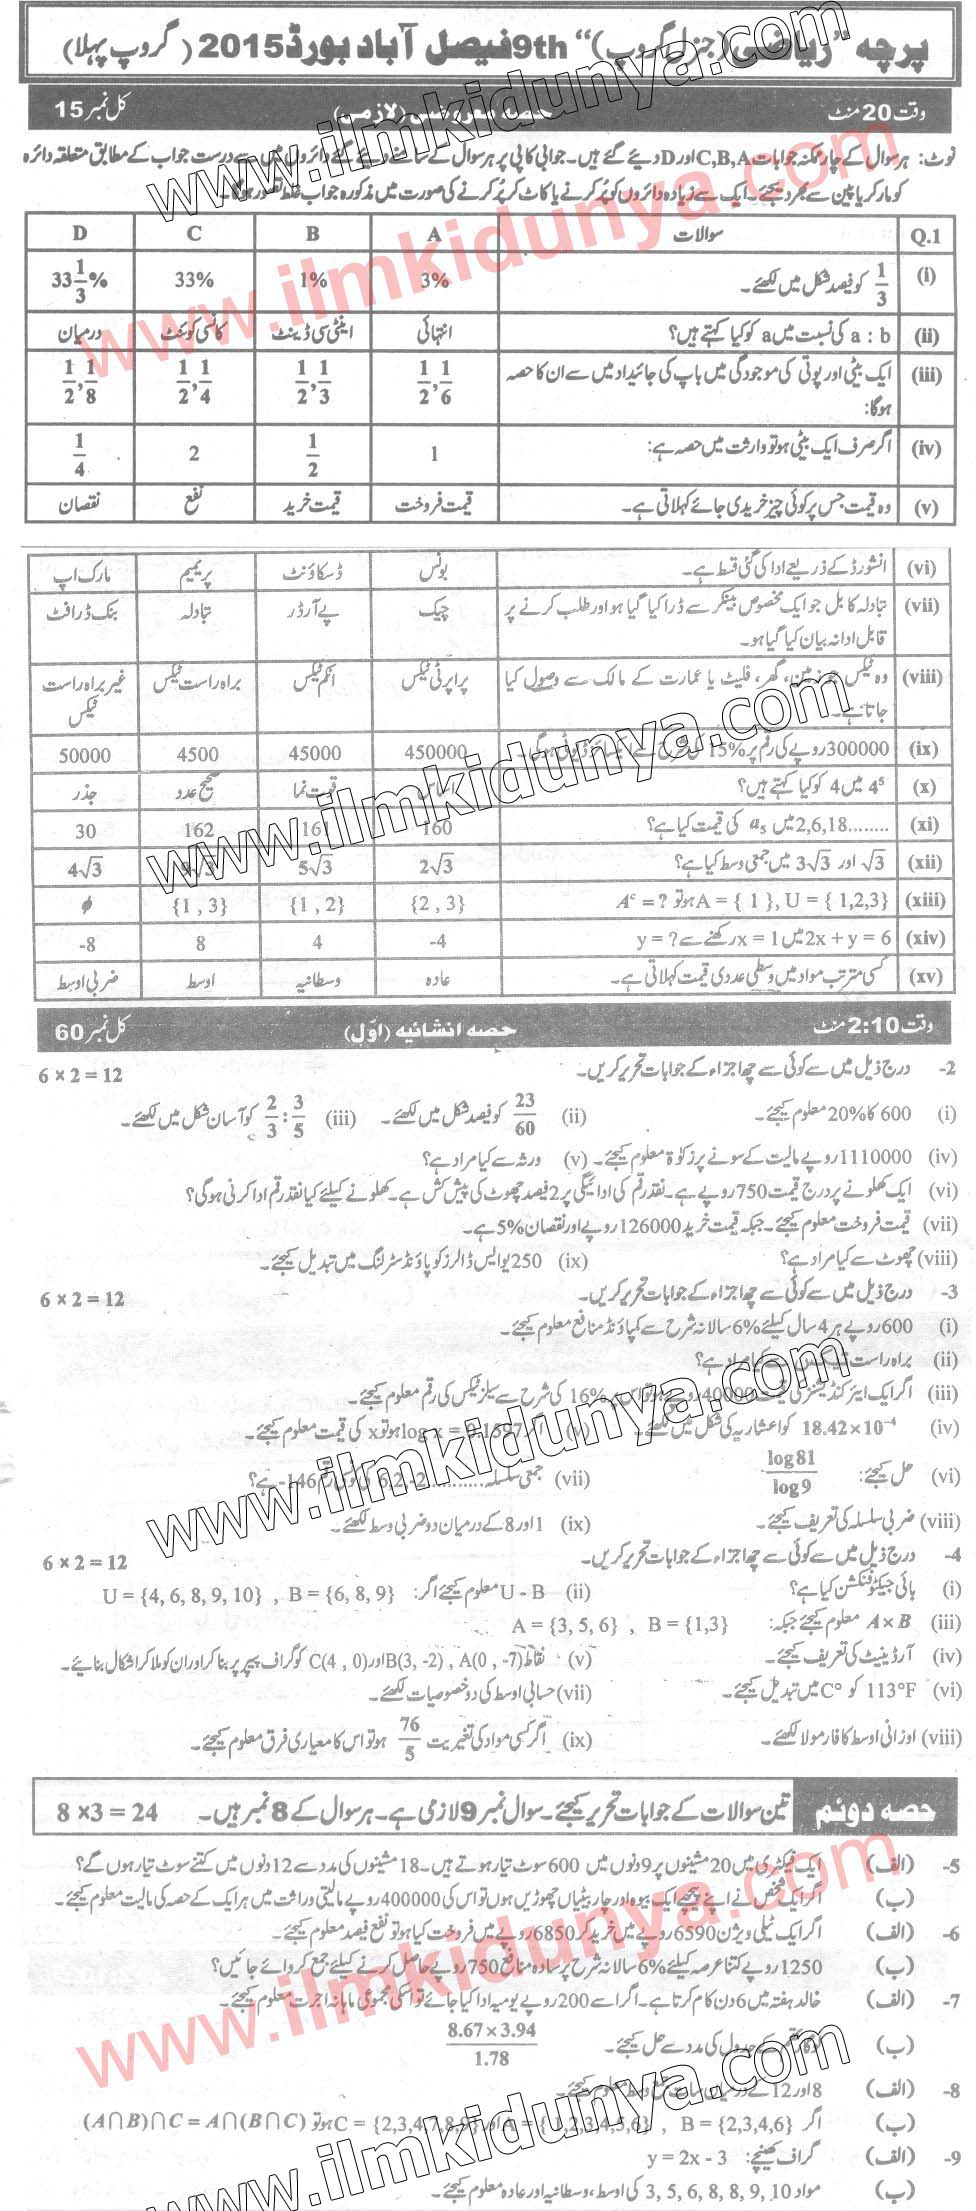 پرچہ "ریاضی (جنرل گروپ)" 9th فیصل آباد بورڈ 2015 (گروپ پہلا)
وقت 20 منٹ حصہ معروضی (لازمی) کل نمبر 15
نوٹ: ہر سوال کے چار ممکنہ جوابات C,B,A اور D دیئے گئے ہیں۔ جوابی کاپی پر ہر سوال کے سامنے دیئے گئے دائروں میں سے درست جواب کے مطابق متعلقہ دائرہ
کو مارکر یا پین سے بھر دیجئے۔ ایک سے زیادہ دائروں کو پُر کرنے یا کاٹ کر پُر کرنے کی صورت میں مذکورہ جواب غلط تصور ہوگا۔
Q.1 سوالات A B C D
(i) 1/3 کو فیصد شکل میں لکھئے۔ 3% 1% 33% 33 1/3 %
(ii) a : b کی نسبت میں a کو کیا کہتے ہیں؟ انتہائی اینٹی سی ڈینٹ کانسی کوئنٹ درمیان
(iii) ایک بیٹی اور پوتی کی موجودگی میں باپ کی جائیداد میں سے ان کا حصہ
ہوگا: 1/2, 1/6 1/2, 1/3 1/2, 1/4 1/2, 1/8
(iv) اگر صرف ایک بیٹی ہو تو وراثت میں حصہ ہے: 1 1/2 2 1/4
(v) وہ قیمت جس پر کوئی چیز خریدی جائے کہلاتی ہے۔ قیمت فروخت قیمت خرید نفع نقصان
(vi) انشورڈ کے ذریعے ادا کی گئی قسط ہے۔ بونس ڈسکاؤنٹ پریمیم مارک اپ
(vii) تبادلہ کا بل جو ایک مخصوص بینکر سے ڈرا کیا گیا ہو اور طلب کرنے پر
قابل ادا نہ بیان کیا گیا ہو۔ چیک پے آرڈر تبادلہ بنک ڈرافٹ
(viii) وہ ٹیکس جو زمین، گھر، فلیٹ یا عمارت کے مالک سے وصول کیا
جاتا ہے۔ پراپرٹی ٹیکس انکم ٹیکس براہ راست ٹیکس غیر براہ راست
ٹیکس
(ix) 300000 روپے کی رقم پر 15% کی شرح سے ایکسائز ڈیوٹی ہوگی۔ 450000 45000 4500 50000
(x) 4⁵ میں 4 کو کیا کہتے ہیں؟ اساس قوت نما صحیح عدد جذر
(xi) 2,6,18........ میں a₅ کی قیمت کیا ہے؟ 160 161 162 30
(xii) √3 اور 3√3 میں جمعی وسط کیا ہے؟ 2√3 5√3 3√3 4√3
(xiii) A = { 1 }, U = { 1,2,3} ہو تو Aᶜ = ? {2 , 3} {1 , 2} {1 , 3} ϕ
(xiv) 2x + y = 6 میں x = 1 رکھنے سے y = ? -4 4 8 -8
(xv) کسی مرتب مواد میں وسطی عددی قیمت کہلاتی ہے۔ عادہ وسطانیہ اوسط ضربی اوسط
وقت 2:10 منٹ حصہ انشائیہ (اوّل) کل نمبر 60
2- درج ذیل میں سے کوئی سے چھ اجزاء کے جوابات تحریر کریں۔ 6 × 2 = 12
(i) 600 کا 20% معلوم کیجئے۔ (ii) 23/60 کو فیصد شکل میں لکھئے۔ (iii) 2/3 : 3/5 کو آسان شکل میں لکھئے۔
(iv) 1110000 روپے مالیت کے سونے پر زکوٰۃ معلوم کیجئے۔ (v) ورثہ سے کیا مراد ہے؟
(vi) ایک کھلونے پر درج قیمت 750 روپے ہے۔ نقد رقم کی ادائیگی پر 2 فیصد چھوٹ کی پیش کش ہے۔ کھلونے کیلئے کیا نقد رقم ادا کرنی ہوگی؟
(vii) قیمت فروخت معلوم کیجئے۔ جبکہ قیمت خرید 126000 روپے اور نقصان 5% ہے۔
(viii) چھوٹ سے کیا مراد ہے؟ (ix) 250 یو ایس ڈالرز کو پاؤنڈ سٹرلنگ میں تبدیل کیجئے۔
3- درج ذیل میں سے کوئی سے چھ اجزاء کے جوابات تحریر کریں۔ 6 × 2 = 12
(i) 600 روپے ہر 4 سال کیلئے 6% سالانہ شرح سے کمپاؤنڈ منافع معلوم کیجئے۔
(ii) براہ راست ٹیکس سے کیا مراد ہے؟
(iii) اگر ایک ایئر کنڈیشنر کی قیمت 40000 روپے ہو تو اس پر 16% کی شرح سے سیلز ٹیکس کی رقم معلوم کیجئے۔
(iv) 18.42×10⁻⁴ کو اعشاریہ کی شکل میں لکھئے۔ (v) اگر log x = 0.1597 ہو تو x کی قیمت معلوم کیجئے۔
(vi) حل کیجئے: log81/log9 (vii) جمعی سلسلہ 6,2,-2........... کی کونسی رقم -146 ہے؟
(viii) ضربی سلسلہ کی تعریف کیجئے۔ (ix) 1 اور 8 کے درمیان دو ضربی وسط لکھئے۔
4- درج ذیل میں سے کوئی سے چھ اجزاء کے جوابات تحریر کریں۔ 6 × 2 = 12
(i) بائی جیکٹو فنکشن کیا ہے؟ (ii) U - B معلوم کیجئے اگر: U = {4, 6, 8, 9, 10} , B = {6, 8, 9}
(iii) A×B معلوم کیجئے جبکہ: A = {3, 5, 6} , B = {1,3}
(iv) آرڈینیٹ کی تعریف کیجئے۔ (v) نقاط A(0 , -7) , B(3, -2) اور C(4 , 0) کو گراف پیپر پر بنا کر اور ان کو ملا کر اشکال بنائیے۔
(vi) 113°F کو C° میں تبدیل کیجئے۔ (vii) حسابی اوسط کی دو خصوصیات لکھئے۔
(viii) اوزانی اوسط کا فارمولا لکھئے۔ (ix) اگر کسی مواد کی تغیریت 76/5 ہو تو اس کا معیاری فرق معلوم کیجئے۔
حصہ دوئم تین سوالات کے جوابات تحریر کیجئے۔ سوال نمبر 9 لازمی ہے۔ ہر سوال کے 8 نمبر ہیں۔ 8 ×3 = 24
5- (الف) ایک فیکٹری میں 20 مشینوں پر 9 دنوں میں 600 سوٹ تیار ہوتے ہیں۔ 18 مشینوں کی مدد سے 12 دنوں میں کتنے سوٹ تیار ہوں گے؟
(ب) اگر ایک شخص نے اپنے پیچھے ایک بیوہ اور چار بیٹیاں چھوڑیں ہوں تو اس کی 400000 روپے مالیتی وراثت میں ہر ایک کے حصہ کی مالیت معلوم کیجئے۔
6- (الف) اگر ایک ٹیلی ویژن 6590 روپے میں خرید کر 6850 روپے میں فروخت کیا ہو تو نفع فیصد معلوم کیجئے۔
(ب) 1250 روپے کتنا عرصہ کیلئے 6% سالانہ شرح پر سادہ منافع 750 روپے حاصل کرنے کیلئے جمع کروائے جائیں؟
7- (الف) خالد ہفتہ میں 6 دن کام کرتا ہے۔ اگر اسے 200 روپے یومیہ ادا کیا جائے تو اسکی مجموعی ماہانہ اجرت معلوم کیجئے۔
(ب) لوگارتھم کے جدول کی مدد سے حل کیجئے۔ 8.67×3.94/1.78
8- (الف) 8 اور 12 کے درمیان سات جمع وسط معلوم کیجئے۔
(ب) اگر A = {1,2,3,4,5,6} , B = {2,3,4,6} اور C = {2,3,4,7,8,9} ہو تو (A∩B)∩C = A∩(B∩C)
9- (الف) گراف کھینچیے: y = 2x - 3
(ب) مواد 3, 5, 6, 8, 8, 9, 10 کی اوسط، وسطانیہ اور عادہ معلوم کیجئے۔
www.ilmkidunya.com
www.ilmkidunya.com
www.ilmkidunya.com
www.ilmkidunya.com
www.ilmkidunya.com
www.ilmkidunya.com